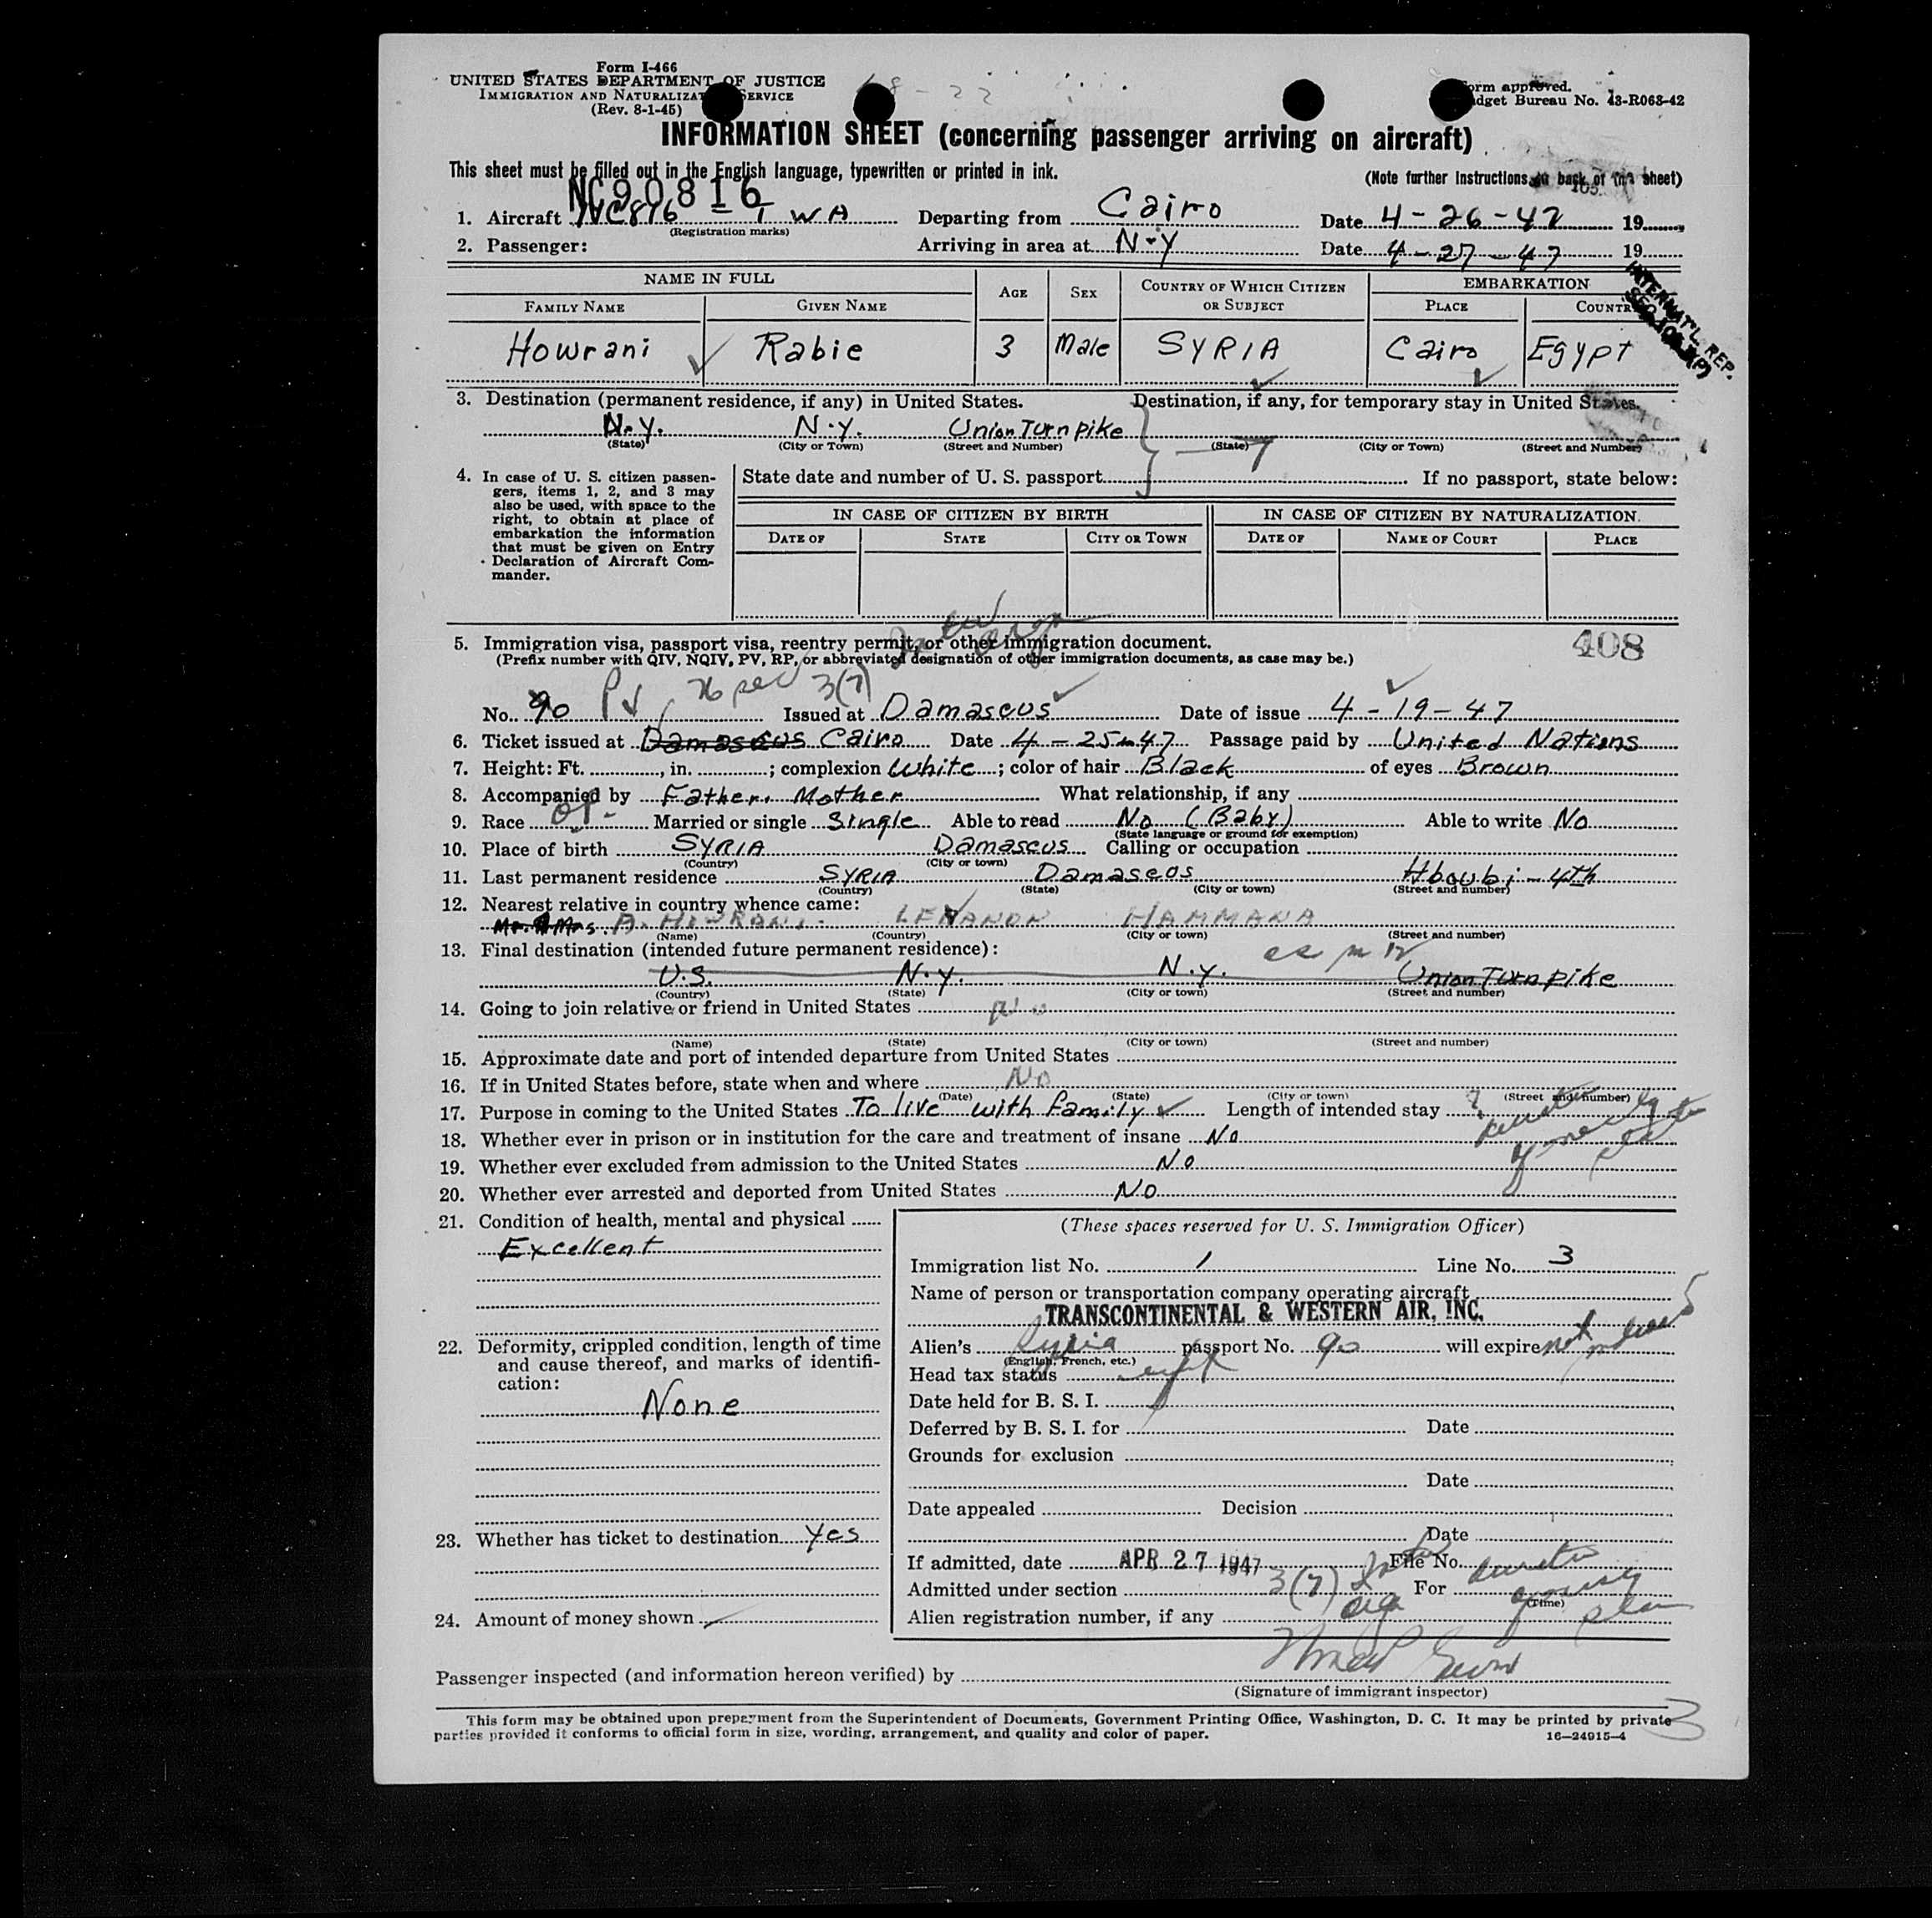 Form I-466
UNITED STATES DEPARTMENT OF JUSTICE
IMMIGRATION AND NATURALIZATION SERVICE
(Rev. 8-1-45)
orm approved.
dget Bureau No. 43-R068-42
INFORMATION SHEET (concerning passenger arriving on aircraft)
This sheet must be filled out in the English language, typewritten or printed in ink.
(Note further instructions on back of this sheet)
NC90816
1. Aircraft NC816 - TWA Departing from Cairo Date 4-26-47 19
(Registration marks)
2. Passenger: Arriving in area at N-Y Date 4-27-47 19
INTERNAT'L. REP.
NAME IN FULL AGE SEX COUNTRY OF WHICH CITIZEN OR SUBJECT EMBARKATION
FAMILY NAME GIVEN NAME PLACE COUNTR
Howrani Rabie 3 Male SYRIA Cairo Egypt
3. Destination (permanent residence, if any) in United States. Destination, if any, for temporary stay in United States.
N.Y. N.Y. Union Turnpike
(State) (City or Town) (Street and Number) (State) (City or Town) (Street and Number)
4. In case of U. S. citizen passengers, items 1, 2, and 3 may also be used, with space to the right, to obtain at place of embarkation the information that must be given on Entry Declaration of Aircraft Commander.
State date and number of U. S. passport If no passport, state below:
IN CASE OF CITIZEN BY BIRTH IN CASE OF CITIZEN BY NATURALIZATION.
DATE OF STATE CITY OR TOWN DATE OF NAME OF COURT PLACE
5. Immigration visa, passport visa, reentry permit, or other immigration document. 408
(Prefix number with QIV, NQIV, PV, RP, or abbreviated designation of other immigration documents, as case may be.)
3(7)
No. 90 PV Issued at Damascus Date of issue 4-19-47
6. Ticket issued at Damascus Cairo Date 4-25-47 Passage paid by United Nations
7. Height: Ft. , in. ; complexion White ; color of hair Black of eyes Brown
8. Accompanied by Father. Mother What relationship, if any
9. Race Married or single Single Able to read No (Baby) Able to write No
(State language or ground for exemption)
10. Place of birth SYRIA Damascus Calling or occupation
(Country) (City or town)
11. Last permanent residence SYRIA Damascos Hboubi-4th
(Country) (State) (City or town) (Street and number)
12. Nearest relative in country whence came:
Mr. & Mrs. A. HOWRANI. LEBANON HAMMANA
(Name) (Country) (City or town) (Street and number)
13. Final destination (intended future permanent residence):
U.S. N.Y. N.Y. Union Turnpike
(Country) (State) (City or town) (Street and number)
14. Going to join relative or friend in United States
(Name) (State) (City or town) (Street and number)
15. Approximate date and port of intended departure from United States
16. If in United States before, state when and where No
(Date) (State) (City or town) (Street and number)
17. Purpose in coming to the United States To live with family Length of intended stay ?
18. Whether ever in prison or in institution for the care and treatment of insane No
19. Whether ever excluded from admission to the United States No
20. Whether ever arrested and deported from United States No
21. Condition of health, mental and physical
Excellent
22. Deformity, crippled condition, length of time and cause thereof, and marks of identification:
None
23. Whether has ticket to destination Yes
24. Amount of money shown
(These spaces reserved for U. S. Immigration Officer)
Immigration list No. 1 Line No. 3
Name of person or transportation company operating aircraft
TRANSCONTINENTAL & WESTERN AIR, INC.
Alien's Syria passport No. 90 will expire not
(English, French, etc.)
Head tax status
Date held for B. S. I.
Deferred by B. S. I. for Date
Grounds for exclusion
Date
Date appealed Decision
Date
If admitted, date APR 27 1947 File No.
Admitted under section 3(7) For
(Time)
Alien registration number, if any
Passenger inspected (and information hereon verified) by
(Signature of immigrant inspector)
This form may be obtained upon prepayment from the Superintendent of Documents, Government Printing Office, Washington, D. C. It may be printed by private
parties provided it conforms to official form in size, wording, arrangement, and quality and color of paper. 16—24915-4
3